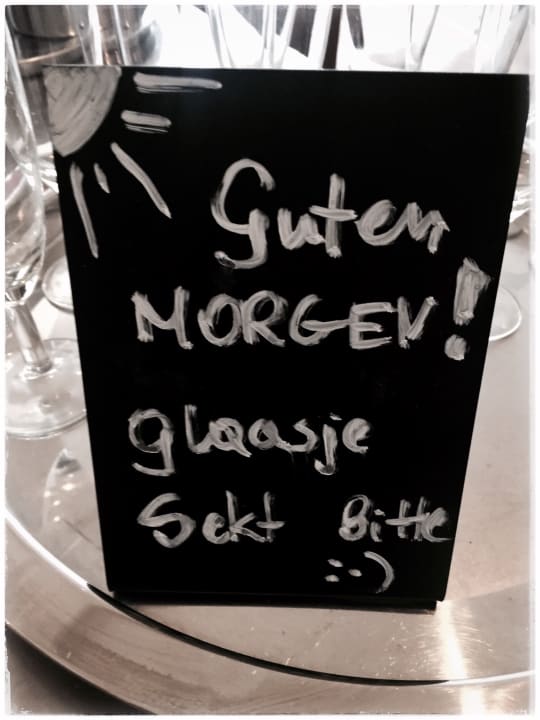 Guten
MORGEN!
glaasje
Sekt Bitte
:-)